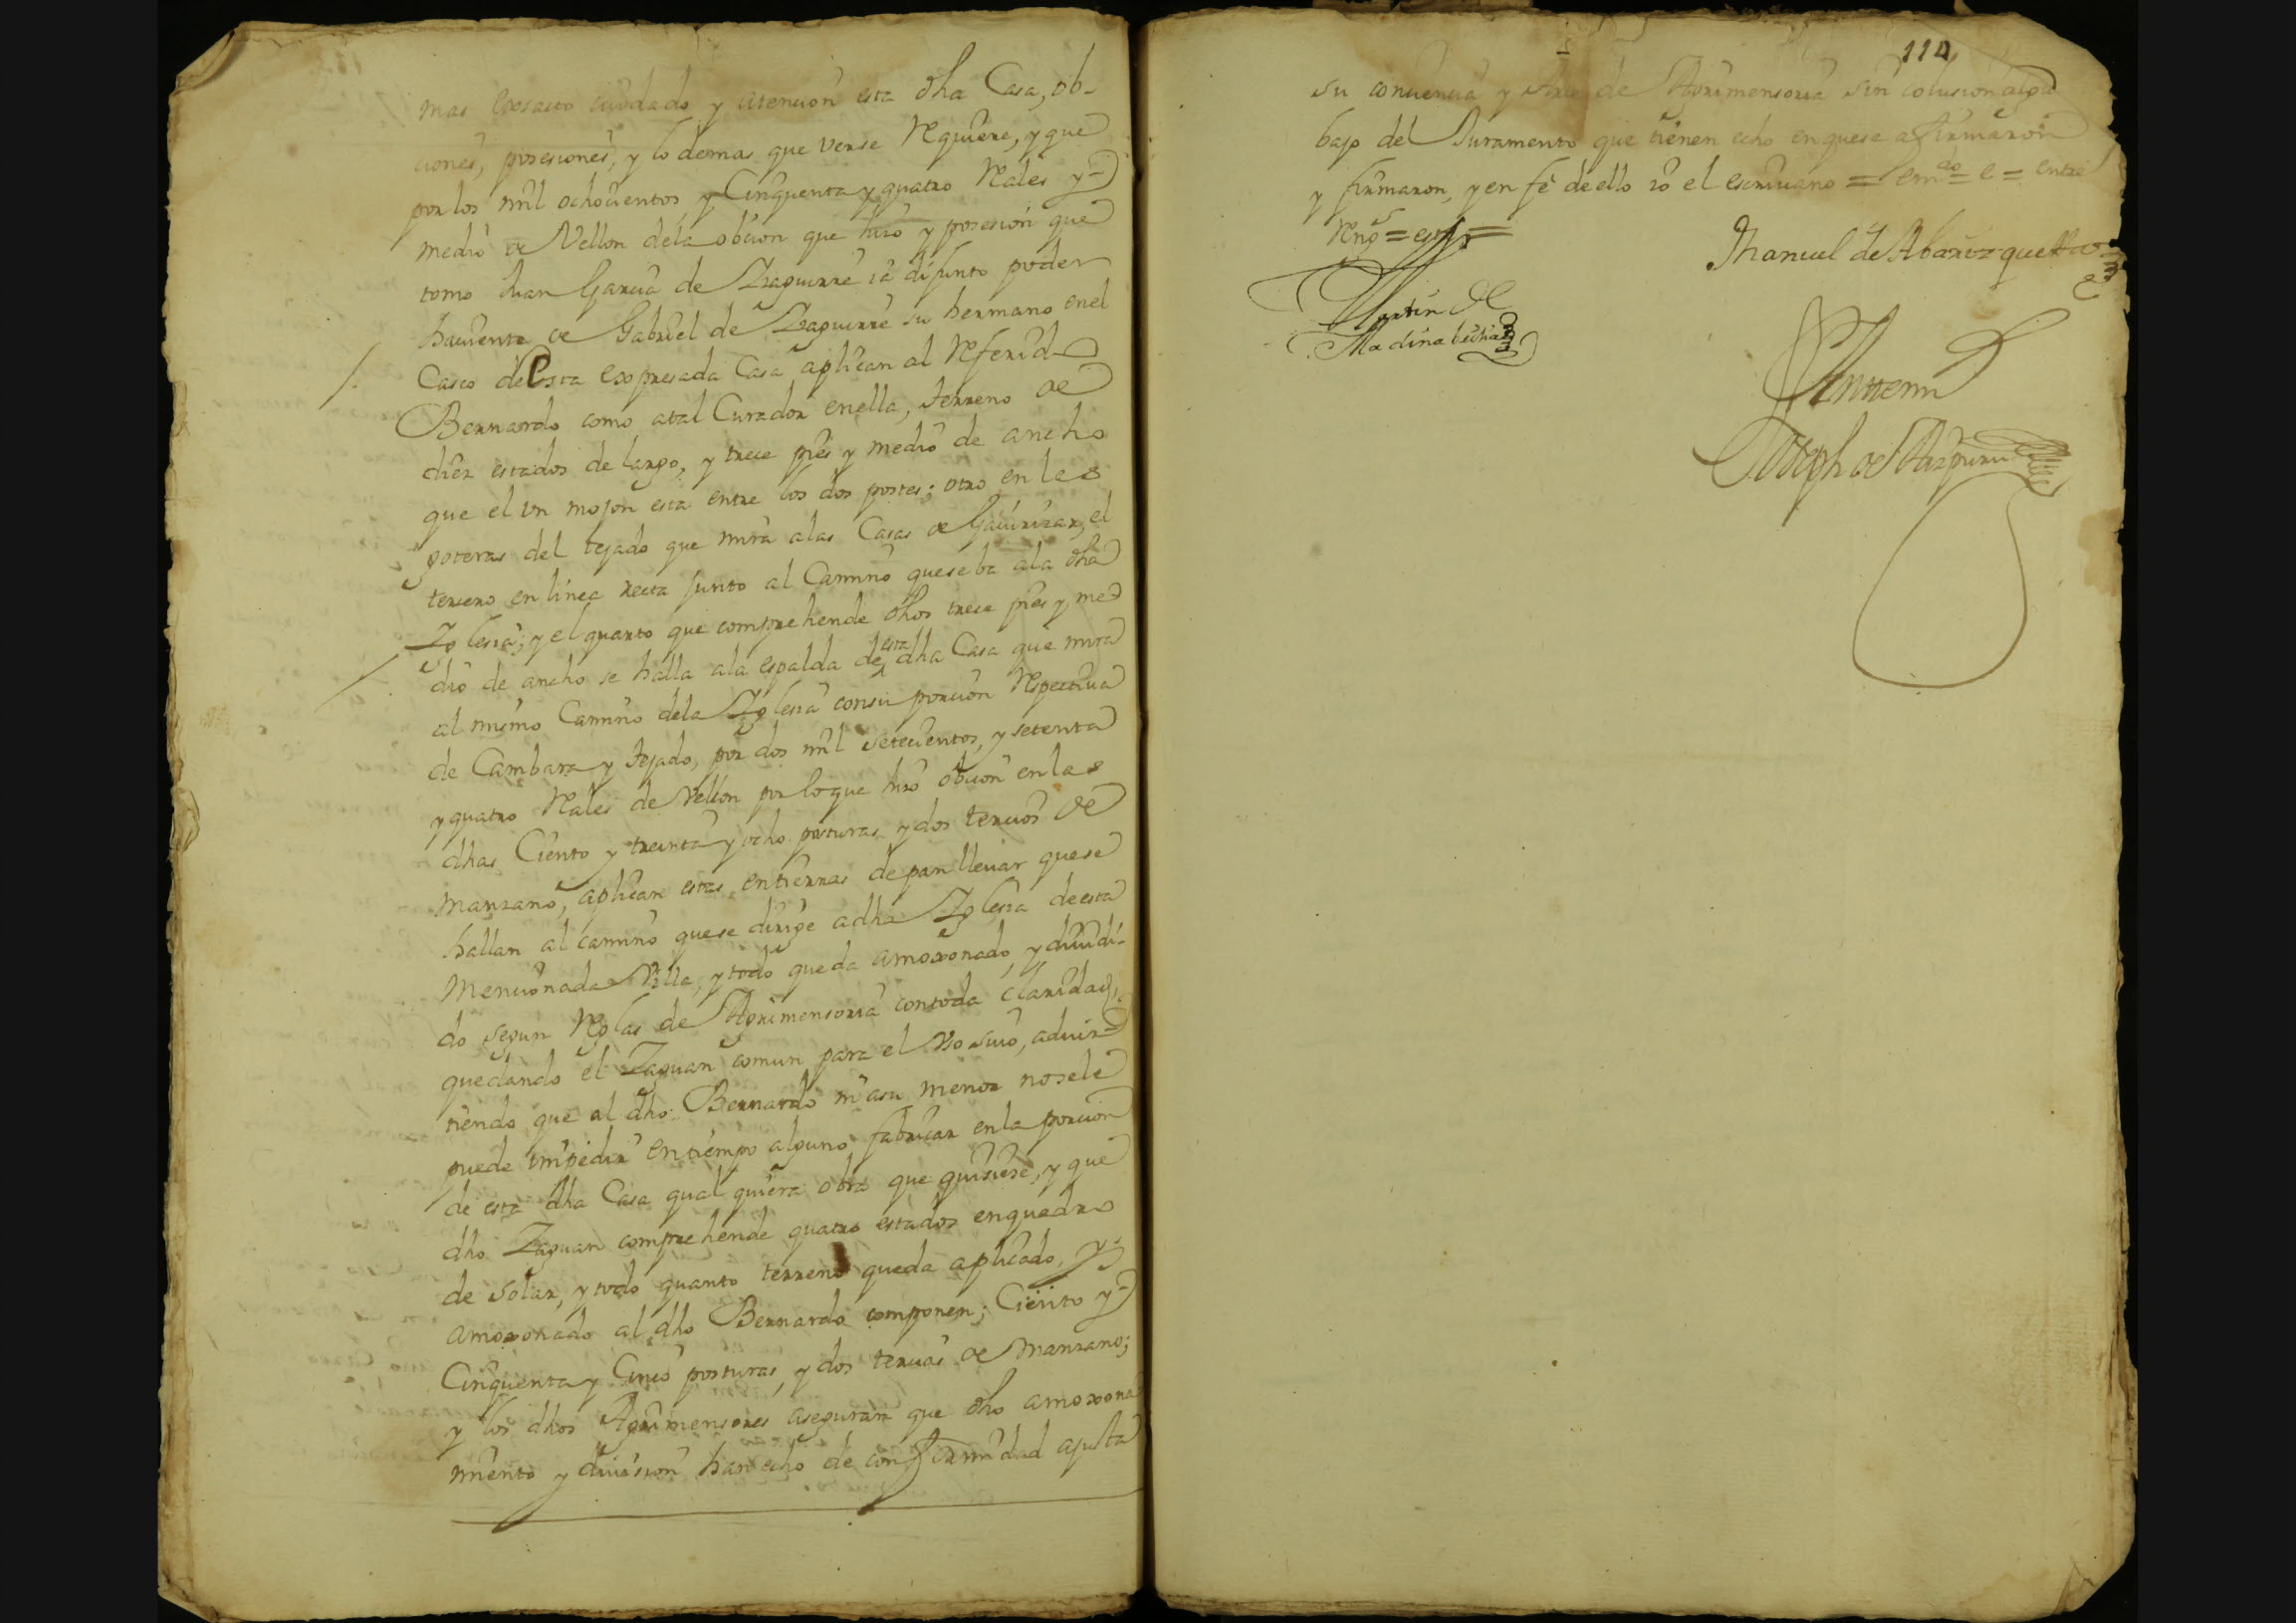 mas exsacto cuidado y atencion esta dha Casa, ob-
ciones, posesiones, y lo demas que verse Requiere, y que
por los mil ochocientos y Cinquenta y quatro Rales y
medio de Vellon dela obcion que hizo y posesion que
tomo Juan Garcia de Yzaguirre ia difunto poder
haviente de Gabriel de Yzaguirre su hermano enel
Casco de esta expresada Casa aplican al Referido
Bernardo como atal Curador enella, terreno de
diez estados de largo, y trece pies y medio de ancho
que el vn mojon esta entre los dos postes; otro en las
goteras del tejado que mira alas Casas de el
tercero en linea recta junto al Camino quese ba ala dha
Yglesia; y el quarto que comprehende dhos trece pies y me
dio de ancho se halla ala espalda de esta dha Casa que mira
al mismo Camino dela Yglesia consu porcion Respectiva
de Cambara y tejado, por dos mil setecientos, y setenta
y quatro Rales de Vellon por loque hizo obcion en las
dhas Ciento y treinta y ocho posturas y dos tercios de
manzano, aplican estas entierras de pan lleuar quese
hallan al camino quese dirige adha Yglesia de esta
mencionada Villa, y todo queda amoxonado, y diuidi-
do segun Reglas de Agrimensoria contoda claridad,
quedando el Zaguan comun para el vso suio, advir
tiendo que al dho Bernardo ni asu menor nosele
puede impedir entiempo alguno fabricar enla porcion
de esta dha Casa qual quiera obra que quisiere, y que
dho Zaguan comprehende quatro estados enquadro
de solar, y todo quanto terreno queda aplicado, y
amoxonado al dho Bernardo componen; Ciento y
Cinquenta y Cinco posturas, y dos tercias de manzano;
y los dhos Agrimensores aseguran que dho amoxona
miento y diuision han echo de conformidad ajusta
114
su conciencia y Arte de Agrimensoria sin colusion algª
bajo del Juramento que tienen echo en quese afirmaron
y firmaron, y en fe de ello io el escriuano = emdo = e = entre
Rngs = esta =
Manuel de Abarizquetta
Martin de
Madinabeitia
Antemi
Joseph de Aizpuru